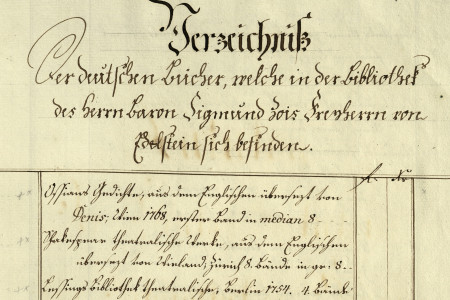 Verzeichniß
Der deutschen Bücher, welche in der Bibliothek
des Herrn Baron Sigmund Zois Freyherrn von
Edelstein sich befinden.
Ossians Gedichte, aus dem Englischen übersezt von
Denis, Wien 1768, erster Band in median 8
Shakespear theatralische Werke, aus dem Englischen
übersezt von Wieland, Zürich 8. Bände in gr: 8
Lessings Bibliothek theatralische, Berlin 1754. 4. Bände